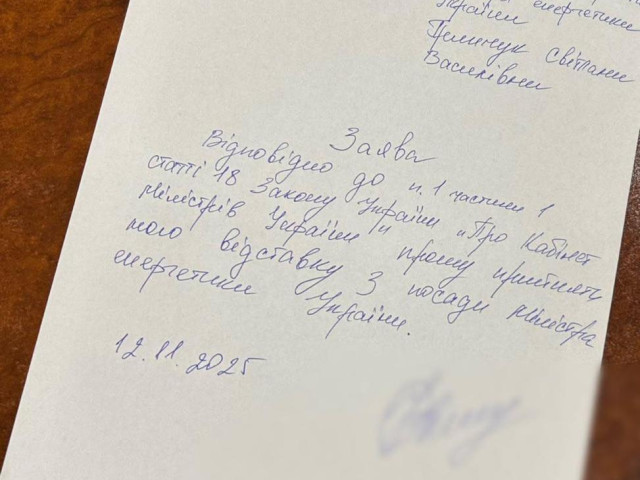 України
енергетики
Гринчук Світлани
Василівни
Заява
Відповідно до п. 1 частини 1
статті 18 Закону України „Про Кабінет
Міністрів України" прошу прийняти
мою відставку з посади Міністра
енергетики України.
12.11.2025